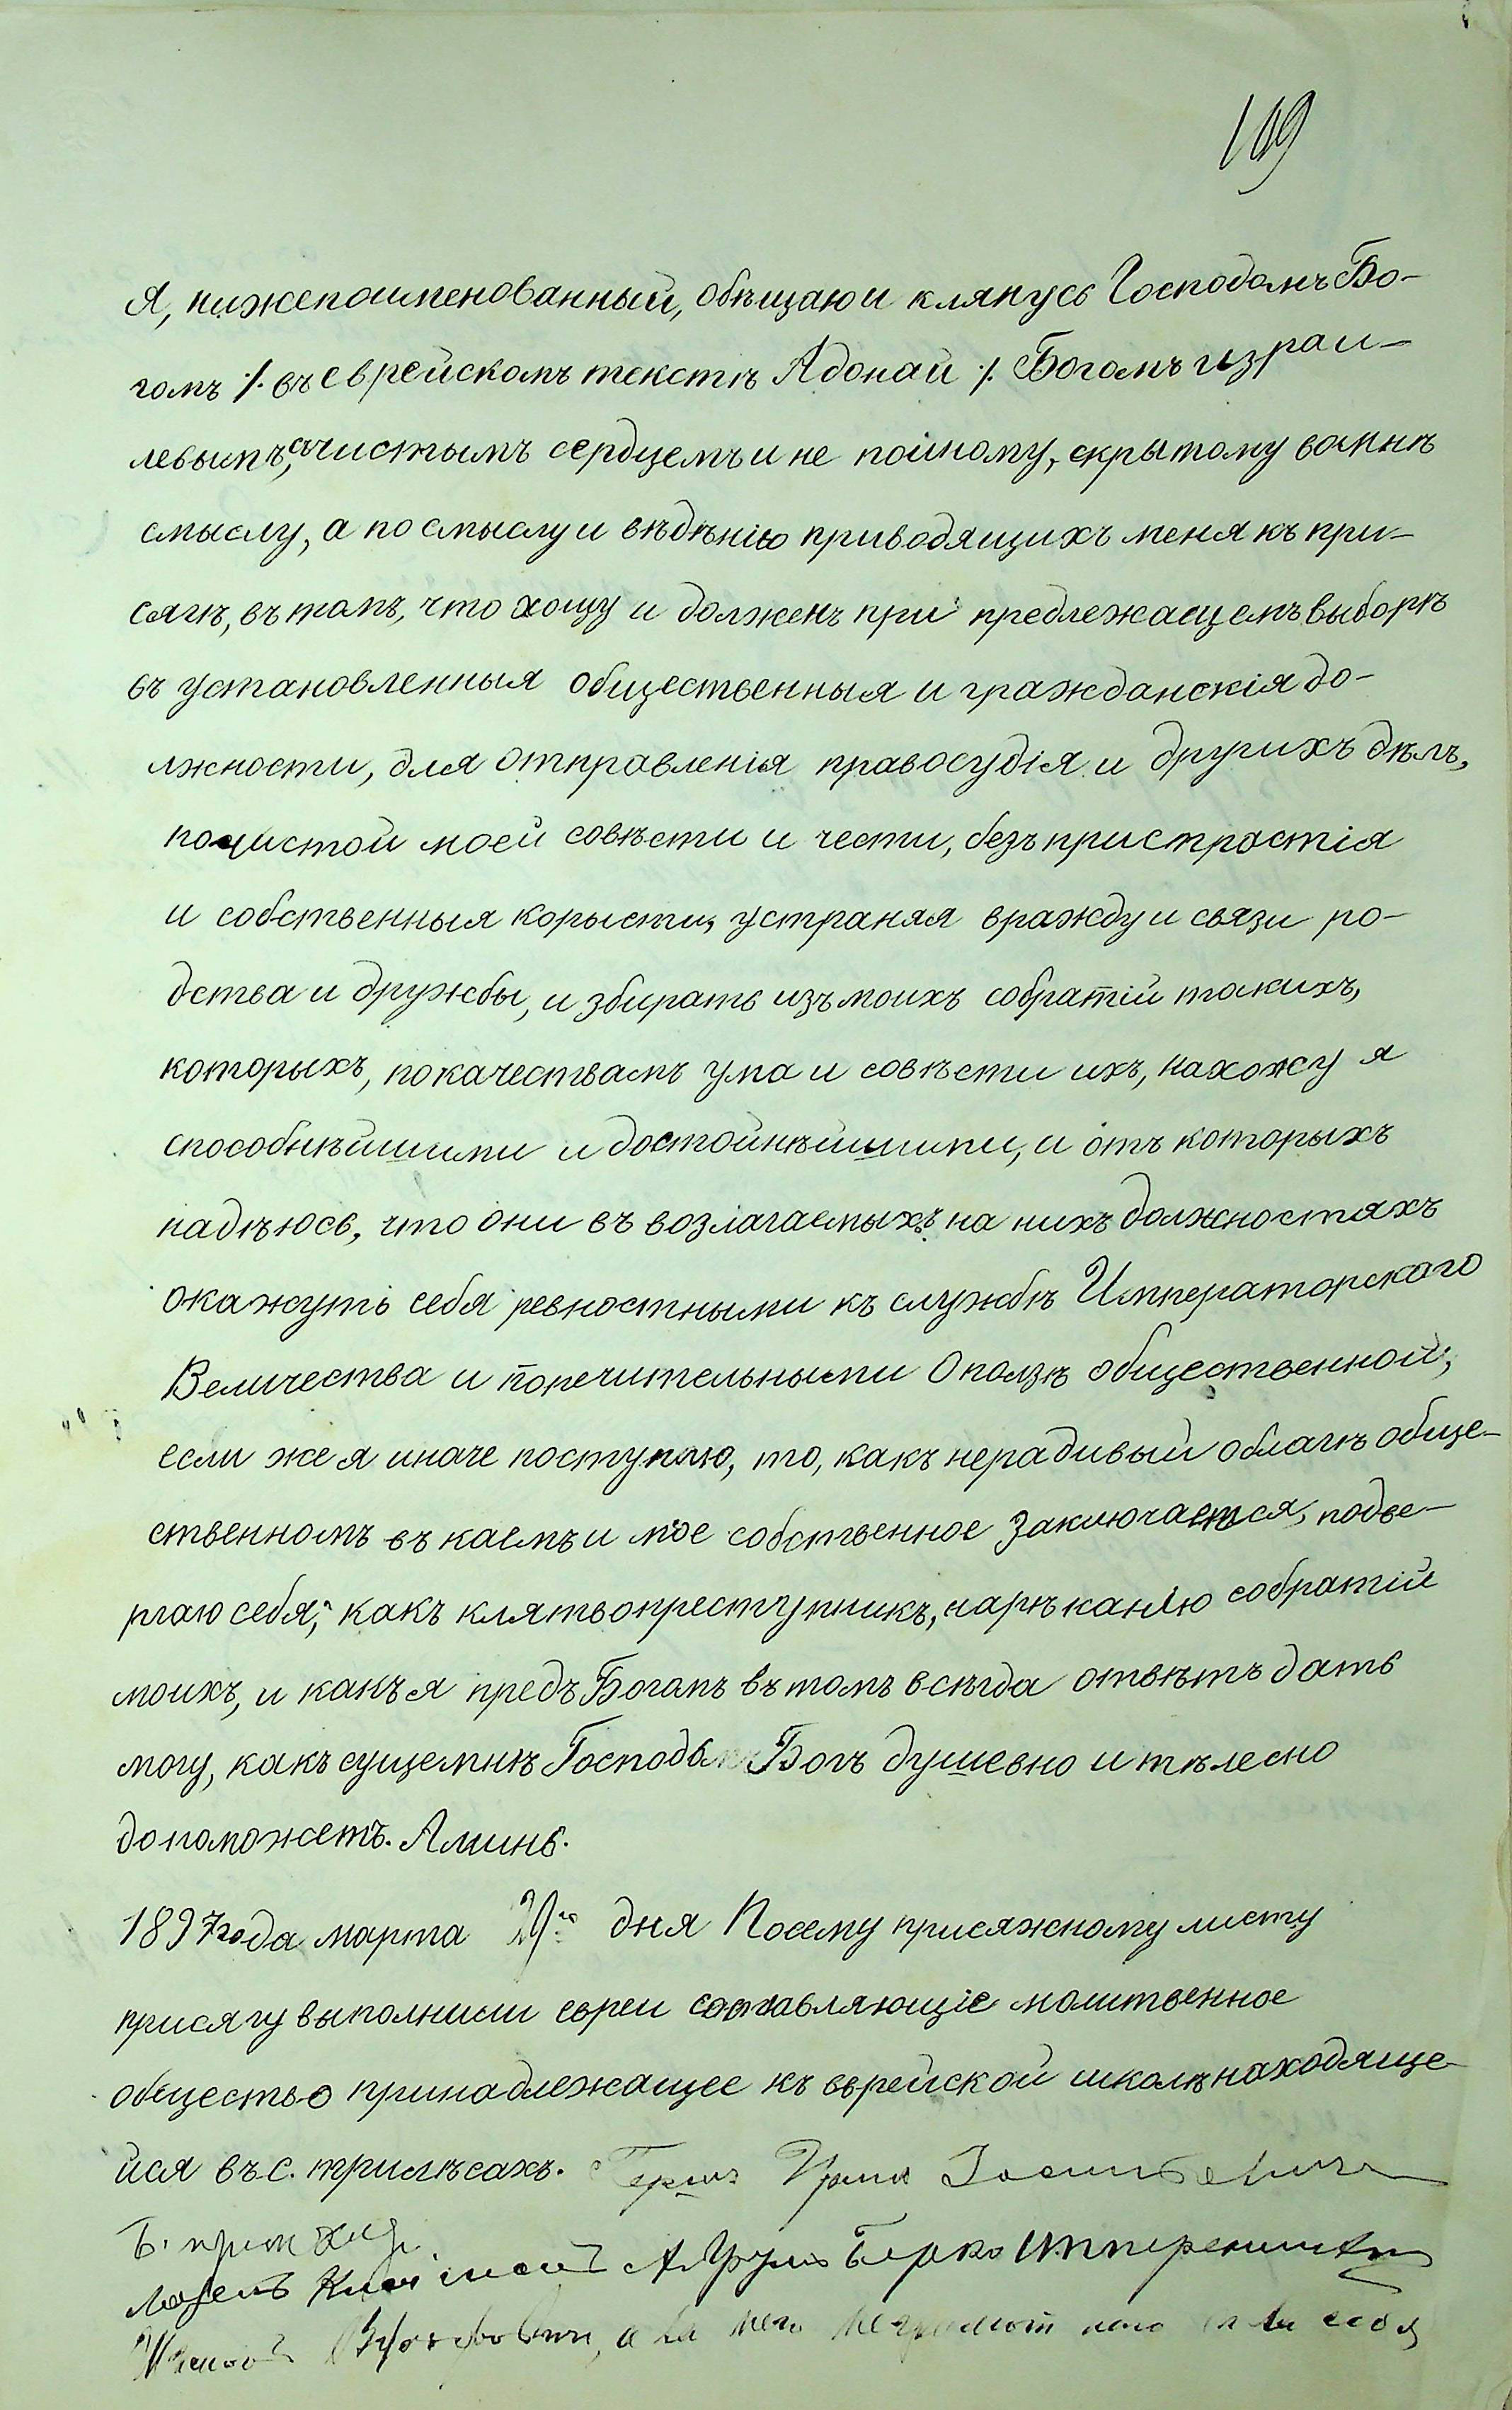 109
Я, нижепоименованный, обѣщаю и клянусь Господомъ Бо-
гомъ ⁒ въ еврейскомъ текстѣ Адонай ⁒ Богомъ израи-
левымъ, съ чистымъ сердцемъ и не по иному, скрытому во мнѣ
смыслу, а по смыслу и вѣдѣнію приводящихъ меня къ при-
сягѣ, въ томъ, что хощу и долженъ при предлежащемъ выборѣ
въ установленныя общественныя и гражданскія до-
лжности, для отправленія правосудія и другихъ дѣлъ,
по чистой моей совѣсти и чести, безъ пристрастія
и собственныя корысти, устраняя вражду и связи ро-
дства и дружбы, избирать изъ моихъ собратій такихъ,
которыхъ, по качествамъ ума и совѣсти ихъ, нахожу я
способнѣйшими и достойнѣйшими, и отъ которыхъ
надѣюсь, что они въ возлагаемыхъ на нихъ должностяхъ
окажутъ себя ревностными къ службѣ Императорскаго
Величества и попечительными о ползѣ общественной;
если же я иначе поступаю, то, какъ нерадивый о благѣ обще-
ственномъ въ каемъ и мое собственное заключается, подве-
ргаю себя, какъ клятвопреступникъ, нарѣканію собратій
моихъ, и какъ я предъ Богомъ въ томъ всѣгда отвѣтъ дать
могу, какъ суще мнѣ Господь Богъ душевно и тѣлесно
допоможетъ. Аминь.
1897 года марта 29го дня По сему присяжному листу
присягу выполнили евреи составляющіе молитвенное
общество принадлежащее къ еврейской школѣ находяще-
йся въ с. трилѣсахъ. Герш
Берко
а за него неграмотного и за себя